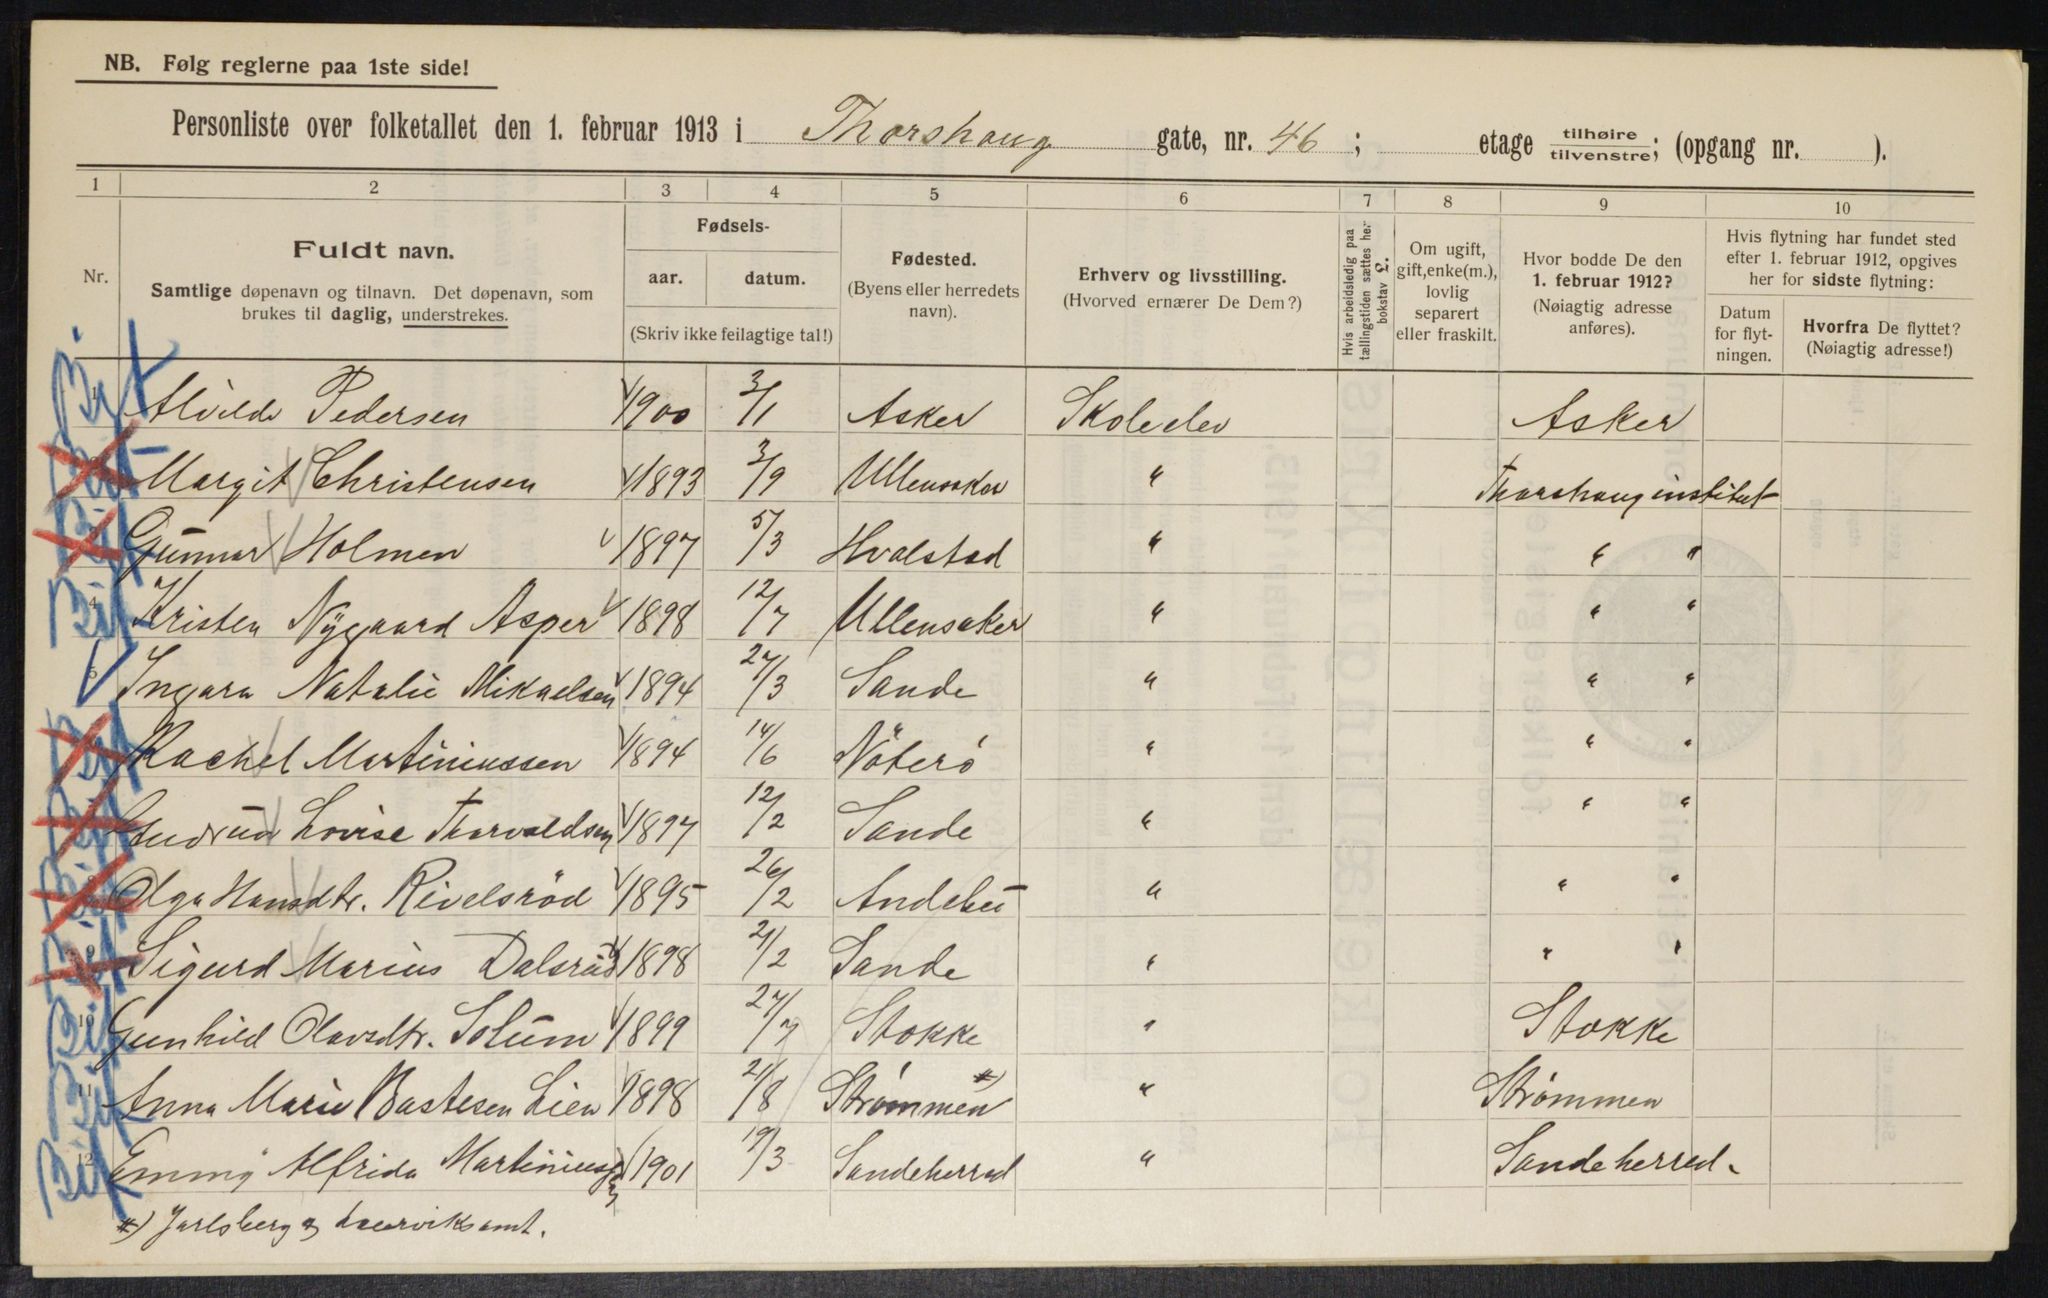 NB. Følg reglerne paa 1ste side!
Personliste over folketallet den 1. februar 1913 i Thorshaug gate, nr. 46 ; etage tilhøire/tilvenstre; (opgang nr. ).
1 2 3 4 5 6 7 8 9 10
Nr.
Fuldt navn.
Samtlige døpenavn og tilnavn. Det døpenavn, som
brukes til daglig, understrekes.
Fødsels-
aar. datum.
(Skriv ikke feilagtige tal!)
Fødested.
(Byens eller herredets
navn).
Erhverv og livsstilling.
(Hvorved ernærer De Dem?)
Hvis arbeidsledig paa
tællingstiden sættes her
bokstav £.
Om ugift,
gift, enke(m.),
lovlig
separert
eller fraskilt.
Hvor bodde De den
1. februar 1912?
(Nøiagtig adresse
anføres).
Hvis flytning har fundet sted
efter 1. februar 1912, opgives
her for sidste flytning:
Datum
for flyt-
ningen.
Hvorfra De flyttet?
(Nøiagtig adresse!)
1 Alvilde Pedersen 1900 3/1 Asker Skoleelev Asker
Margit Christensen 1893 3/9 Ullensaker " Thorshaug institut
Gunnar Holmen 1897 5/3 Hvalstad " " "
4 Kristen Nygaard Asper 1898 12/7 Ullensaker " " "
5 Ingara Natalie Mikaelsen 1894 27/3 Sande " " "
Rachel Martiniussen 1894 14/6 Nöterö " " "
Gudrun Lovise Thorvaldsen 1897 12/2 Sande " " "
8 Olga Hansdtr. Rivelsröd 1895 26/2 Andebu " " "
9 Sigurd Marius Dalsrud 1898 21/2 Sande " " "
10 Gunhild Olavsdtr. Solum 1899 27/7 Stokke " Stokke
11 Anna Marie Bastesen Lien 1898 21/8 Strømmen *) " Strømmen
12 Emmy Alfrida Martiniussen 1901 19/3 Sandeherred " Sandeherred
*) Jarlsberg og Laurviks amt.